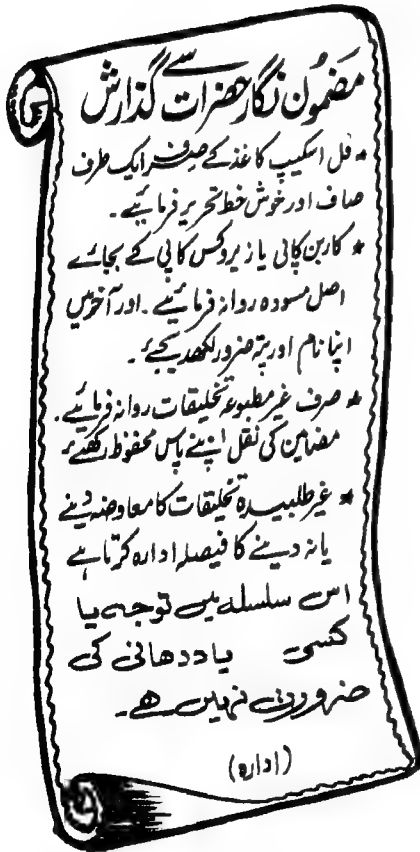 مضمون نگار حضرات سے گذارش
★ فل اسکیپ کاغذ کے صرف ایک طرف
صاف اور خوش خط تحریر فرمائیے۔
★ کاربن کاپی یا زیروکس کاپی کے بجائے
اصل مسودہ روانہ فرمائیے۔ اور آخر میں
اپنا نام اور پتہ ضرور لکھدیجئے۔
★ صرف غیر مطبوعہ تخلیقات روانہ فرمائیے۔
مضامین کی نقل اپنے پاس محفوظ رکھئے
★ غیر طلبیدہ تخلیقات کا معاوضہ دینے
یا نہ دینے کا فیصلہ ادارہ کرتا ہے
اس سلسلہ میں توجہ یا
کسی یاددھانی کی
ضرورت نہیں ھے۔
(ادارہ)